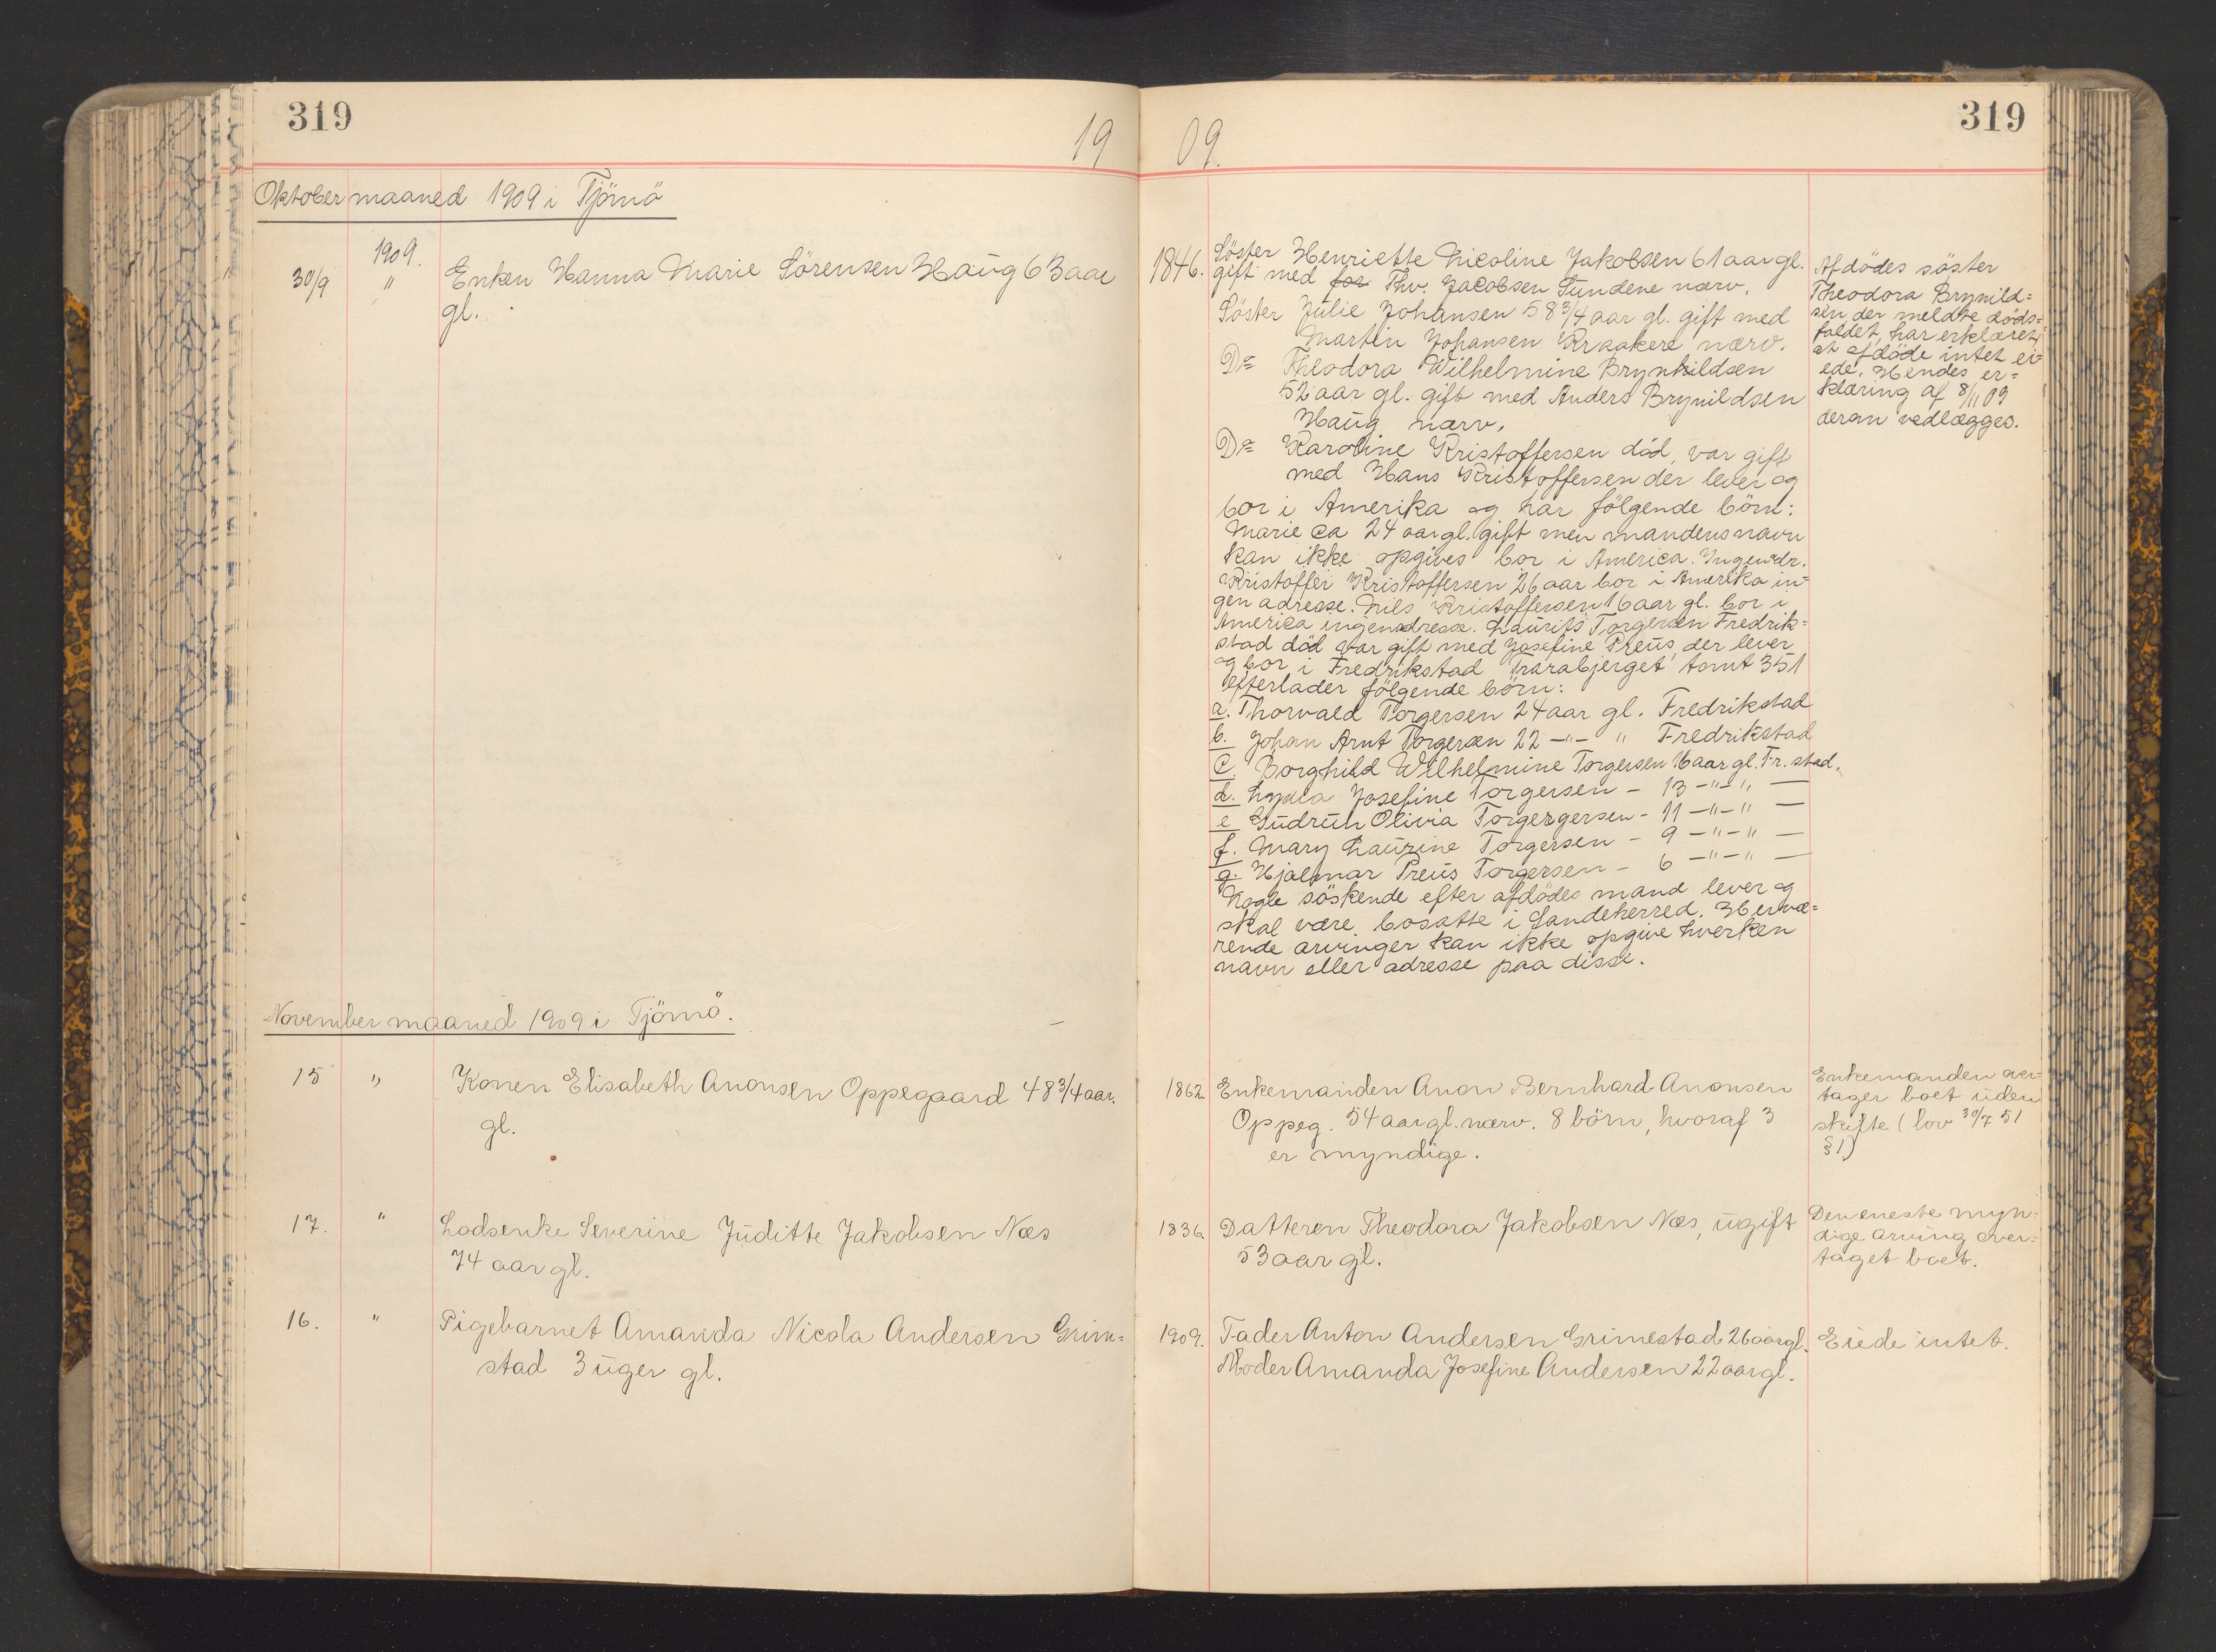 319
19
09.
319
Oktober maaned 1909 i Tjömö
1909.
30/9 " Enken Hanna Marie Sörensen Haug 63 aar
gl.
1846. Söster Henriette Nicoline Jakobsen 61 aar gl.
gift med for Thv. Jacobsen Sundene nærv.
Söster Julie Johansen 58 3/4 aar gl. gift med
Martin Johansen Kraakere nærv.
Do Theodora Wilhelmine Brynhildsen
52 aar gl. gift med Anders Brynildsen
Haug nærv.
Do Karoline Kristoffersen död, var gift
med Hans Kristoffersen der lever og
bor i Amerika og har fölgende börn:
Marie ca 24 aar gl. gift men mandens navn
kan ikke opgives bor i America. Ingen adr.
Kristoffer Kristoffersen 26 aar bor i Amerika in=
gen adresse. Nils Kristoffersen 16 aar gl. bor i
America ingen adresse. Laurits Torgersen Fredrik=
stad död var gift med Josefine Preus, der lever
og bor i Fredrikstad Trarabjerget tomt 351
efterlader fölgende börn:
a. Thorvald Torgersen 24 aar gl. Fredrikstad
b. Johan Arnt Torgersen 22 -"- " Fredrikstad
c. Borghild Wilhelmine Torgersen 16 aar gl. Fr. stad.
d. Lydia Josefine Torgersen - 13 -"-" —
e Gudrun Olivia Torgergersen - 11 -"-" —
f. Mary Laurine Torgersen - 9 -"-" —
g. Hjalmar Preus Torgersen - 6 -"-" —
Nogle söskende efter afdödes mand lever og
skal være bosatte i Sandeherred. Hervæ=
rende arvinger kan ikke opgive hverken
navn eller adresse paa disse.
Afdödes söster
Theodora Brynild=
sen der meldte döds=
faldet, har erklæret,
at afdöde intet ei=
ede. Hendes er=
klæring af 8/11 09
deran vedlægges.
November maaned 1909 i Tjömö.
15 " Konen Elisabeth Anonsen Oppegaard 48 3/4 aar.
gl.
1862. Enkemanden Anon Bernhard Anonsen
Oppeg. 54 aar gl. nærv. 8 börn, hvoraf 3
er myndige.
Enkemanden over=
tager boet uden
skifte (lov 30/7 51
§1)
17. " Lodsenke Severine Juditte Jakobsen Næs
74 aar gl.
1836 Datteren Theodora Jakobsen Næs, ugift
53 aar gl.
Den eneste myn=
dige arving over=
taget boet.
16. " Pigebarnet Amanda Nicola Andersen Grim=
stad 3 uger gl.
1909. Fader Anton Andersen Grimestad 26 aar gl.
Moder Amanda Josefine Andersen 22 aar gl.
Eiede intet.